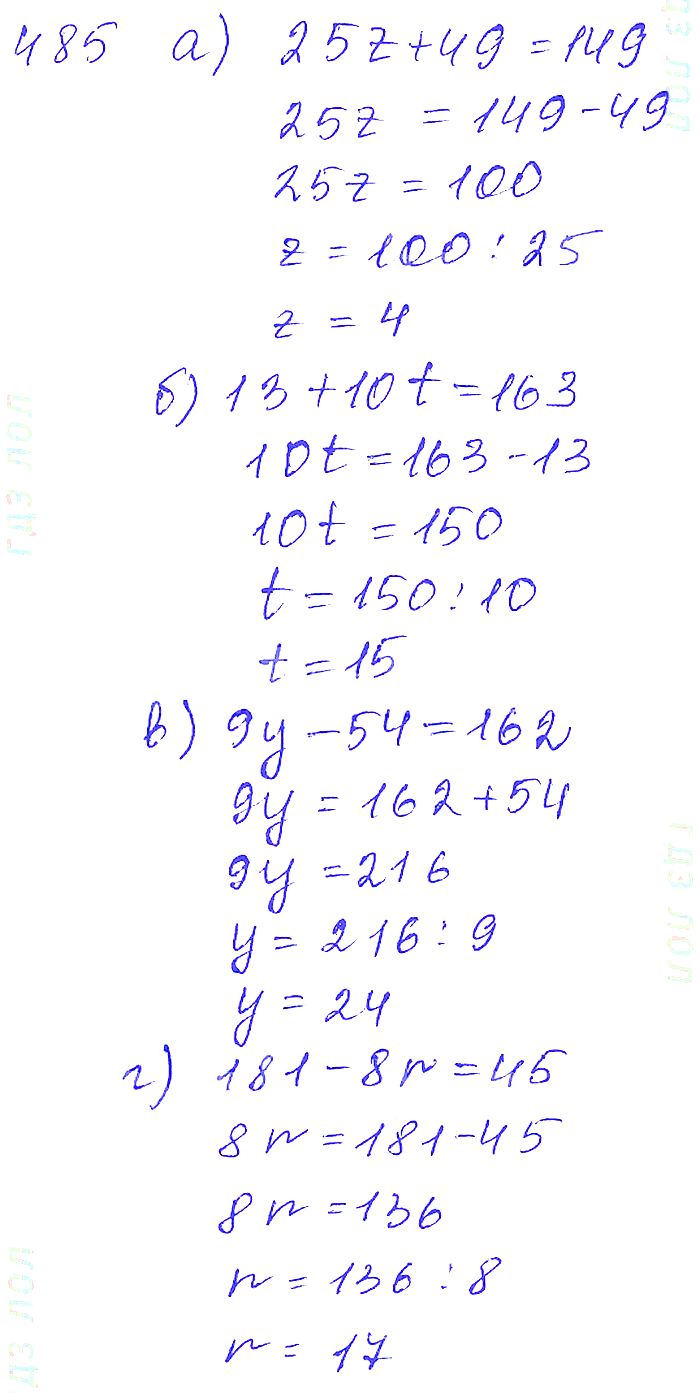 485 а) 25z+49=149
25z = 149-49
25z = 100
z = 100:25
z = 4
б) 13+10t=163
10t=163-13
10t = 150
t = 150:10
t = 15
в) 9y-54=162
9y = 162+54
9y = 216
y = 216:9
y = 24
г) 181-8n=45
8n=181-45
8n=136
n = 136:8
n = 17
гдз лол
гдз лол
гдз лол
дз лол